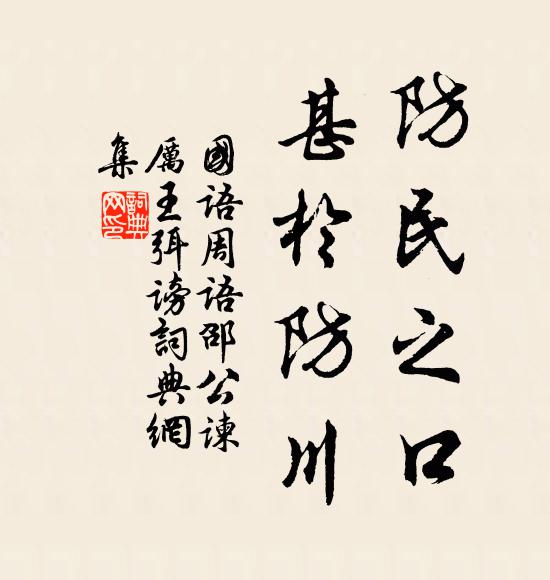 防民之口
甚於防川
國語周語邵公諫
厲王弭謗詞典網
集
詞典
网印